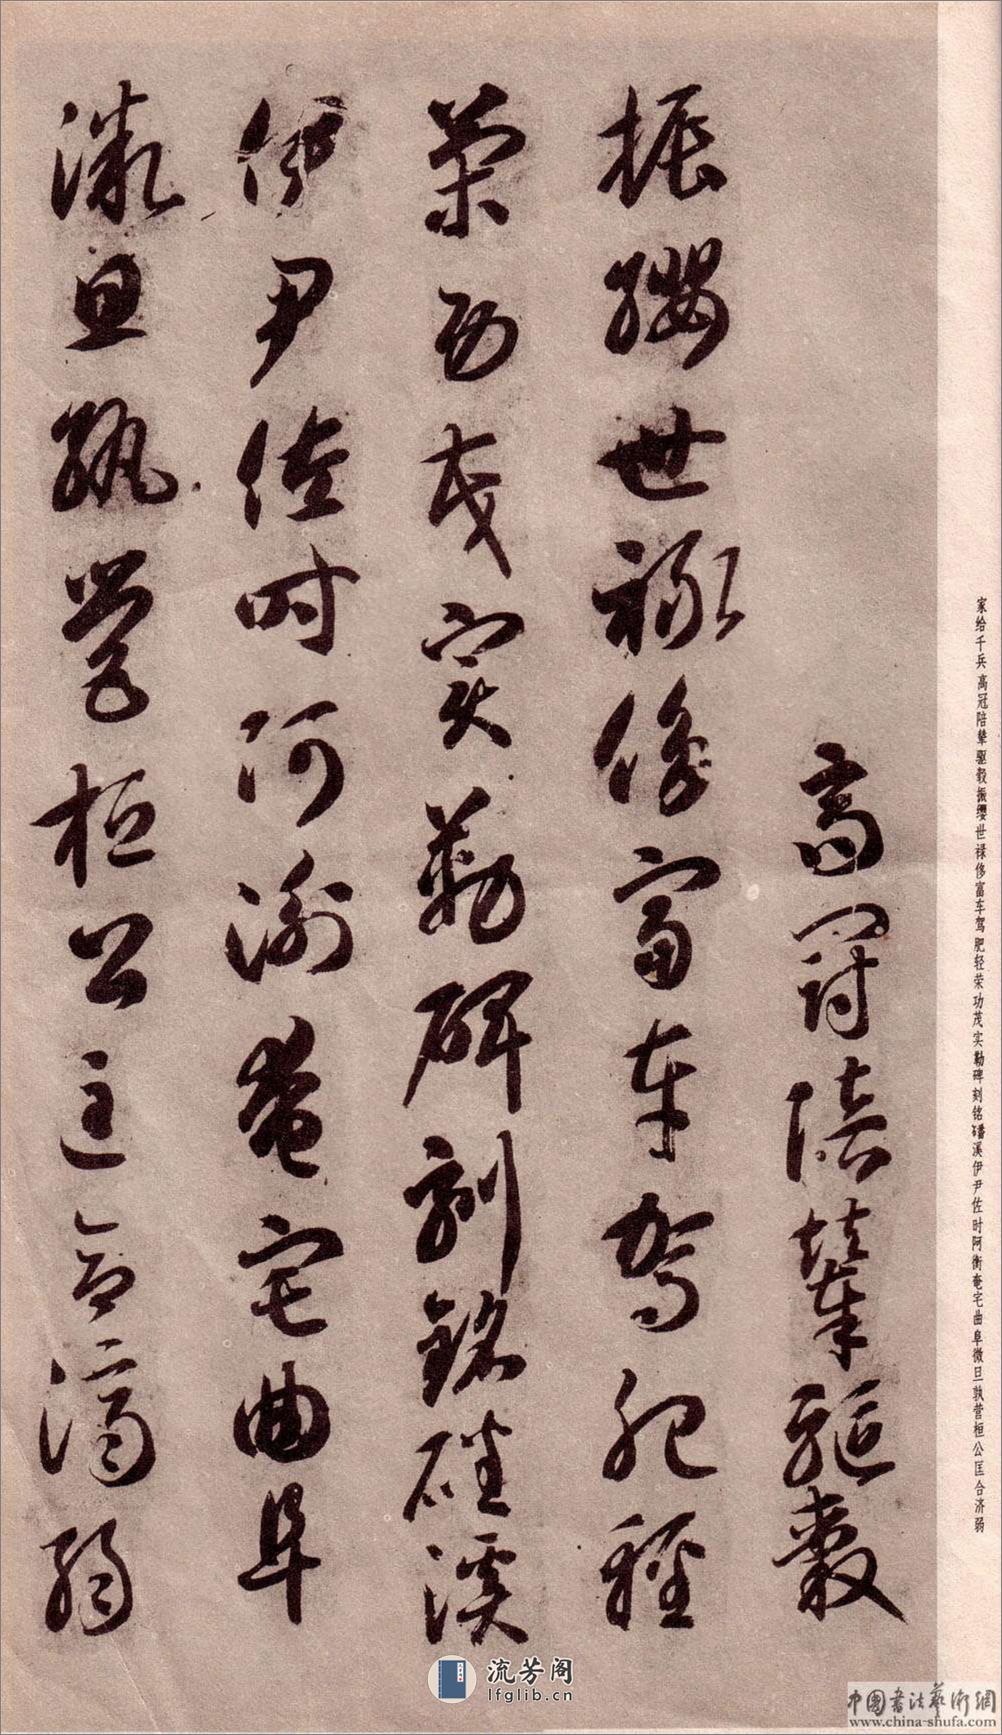 家给千兵 高冠陪辇驱毂振缨世禄侈富车驾肥轻荣功茂实勒碑刻铭磻溪伊尹佐时阿衡奄宅曲阜微旦孰营桓公匡合济弱
高冠陪輦驅轂
振纓世祿侈富車駕肥輕
策功茂實勒碑刻銘磻溪
伊尹佐時阿衡奄宅曲阜
微旦孰營桓公匡合濟弱
流芳阁
lfglib.cn
中國書法藝術網
www.china-shufa.com